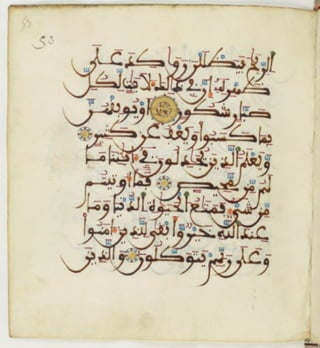 53
الريح فيظللن رواكد على
ظهره إن في ذلك لأيت لكل
صبار شكور او يوبقهن
بما كسبوا ويعف عن كثير
ويعلم الذين يجدلون في ءايتنا ما
لهم من محيص فما اوتيتم
من شىء فمتع الحيوة الدنيا وما
عند الله خير وابقى للذين ءامنوا
وعلى ربهم يتوكلون والذين